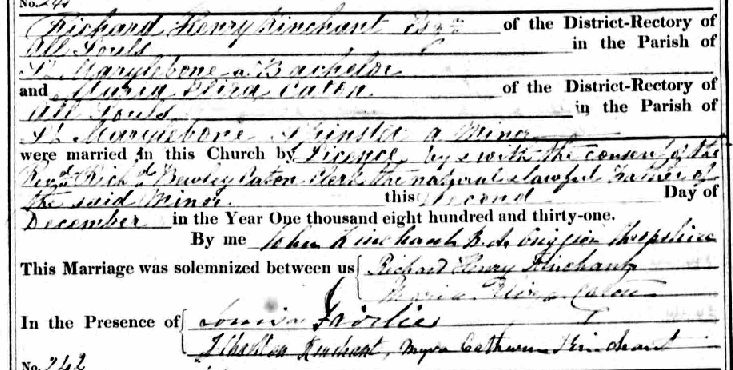 No. 241
Richard Henry Kinchant Esqre of the District-Rectory of
All Souls in the Parish of
St Marylebone a Bachelor
and Maria Eliza Caton of the District-Rectory of
All Souls in the Parish of
St Marylebone Spinster a Minor
were married in this Church by Licence by & with the consent of the
Revd Richd Bewley Caton Clerk the natural & lawful Father of
the said Minor this second Day of
December in the Year One thousand eight hundred and thirty-one.
By me John Kinchant B.A. Shropshire
This Marriage was solemnized between us Richard Henry Kinchant
Maria Eliza Caton
In the Presence of Louisa
Kinchant, Myra Catherine Kinchant
No. 242